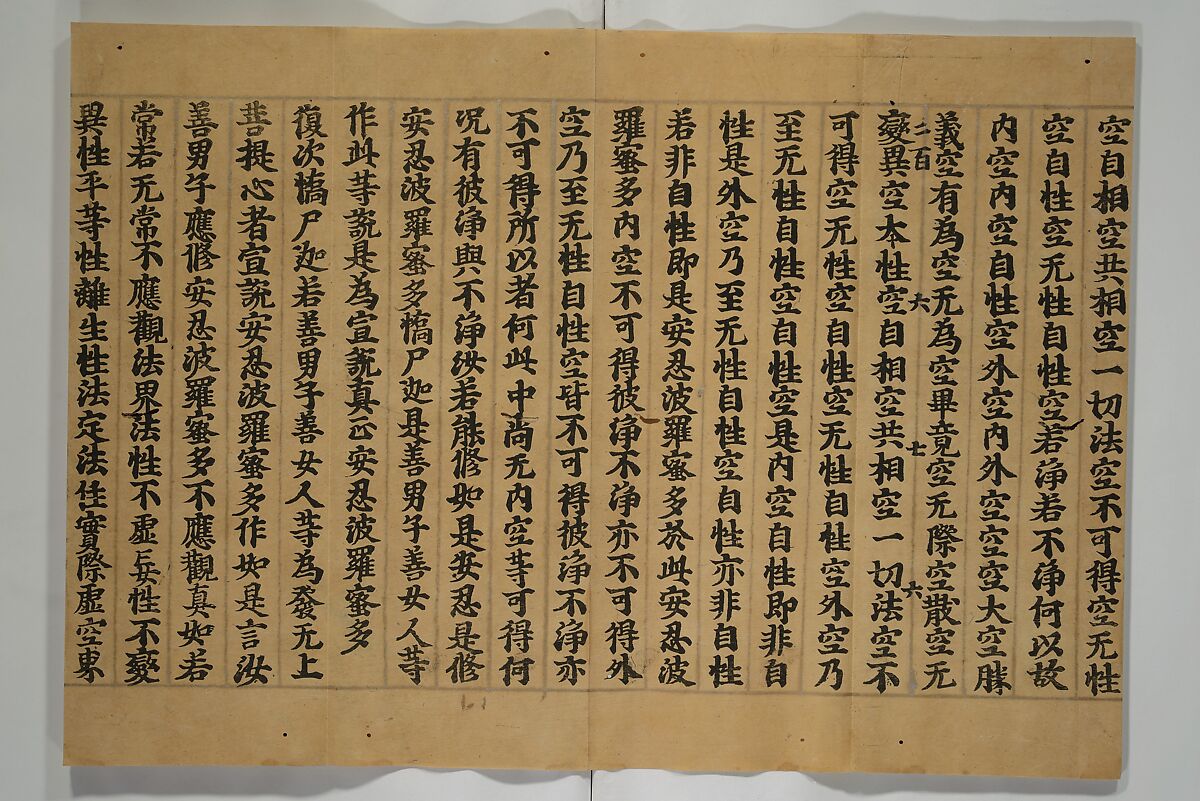 空自相空共相空一切法空不可得空无性
空自性空无性自性空若淨若不淨何以故
内空内空自性空外空内外空空空大空勝
義空有為空无為空畢竟空无際空散空无
二百 六 七 六
變異空本性空自相空共相空一切法空不
可得空无性空自性空无性自性空外空乃
至无性自性空自性空是内空自性即非自
性是外空乃至无性自性空自性亦非自性
若非自性即是安忍波羅蜜多於此安忍波
羅蜜多内空不可得彼淨不淨亦不可得外
空乃至无性自性空皆不可得彼淨不淨亦
不可得所以者何此中尚无内空等可得何
况有彼淨與不淨汝若能修如是安忍是修
安忍波羅蜜多憍尸迦是善男子善女人等
作此等說是為宣說真正安忍波羅蜜多
復次憍尸迦若善男子善女人等為發无上
菩提心者宣說安忍波羅蜜多作如是言汝
善男子應修安忍波羅蜜多不應觀真如若
常若无常不應觀法界法性不虛妄性不變
異性平等性離生性法定法住實際虛空東